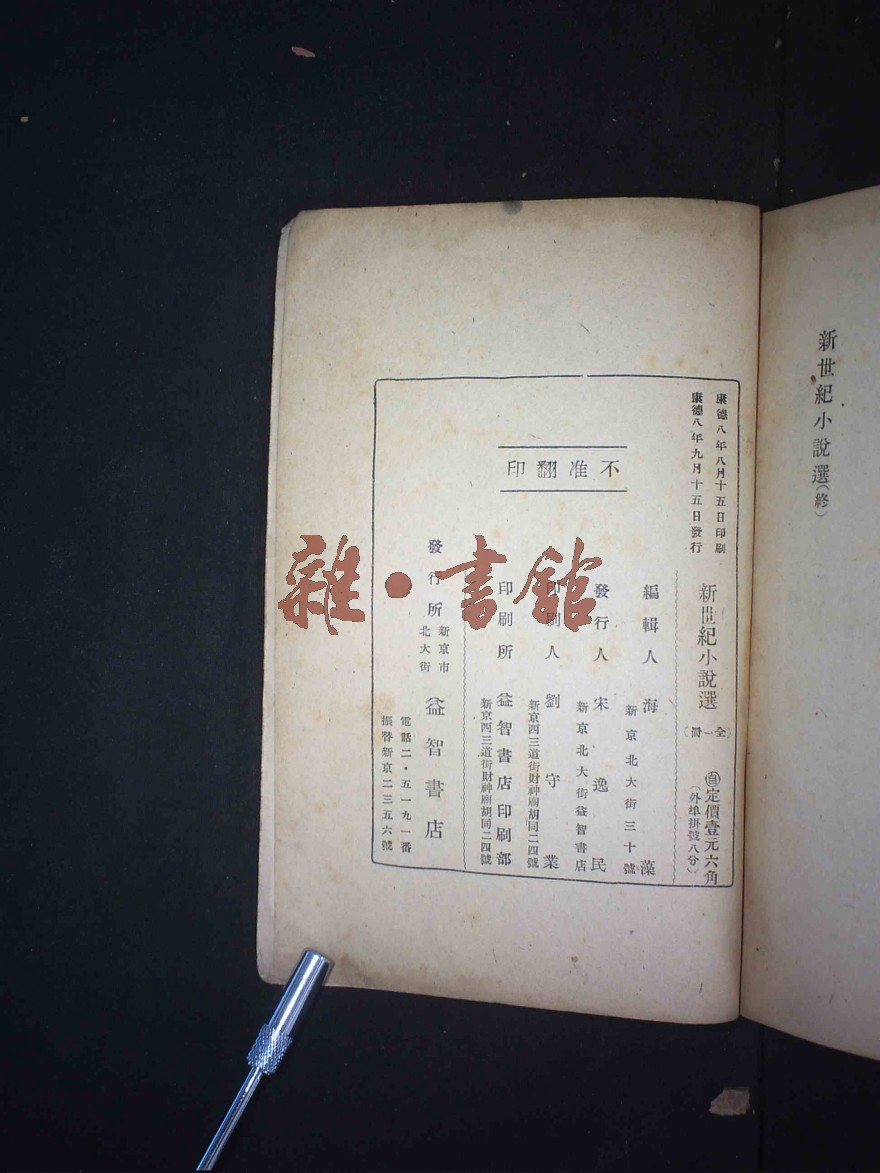 新世紀小說選(終)
康德八年八月十五日印刷
康德八年九月十五日發行
新世紀小說選
〔全一冊〕
定價壹元六角
(外埠掛號八分)
編輯人 海藻
新京北大街三十號
發行人 宋逸民
新京北大街益智書店
印刷人 劉守業
新京西三道街財神廟胡同二四號
印刷所 益智書店印刷部
新京西三道街財神廟胡同二四號
不准翻印
發行所 新京市北大街 益智書店
電話二·五一九一番
振替新京二三五六號
雜·書館